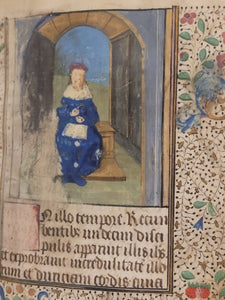 N illo tempore. Recum
bentibus undecim disci
pulis apparuit illis ihs
et exprobravit incredulitatē illo
rum et duriciam cordis quia